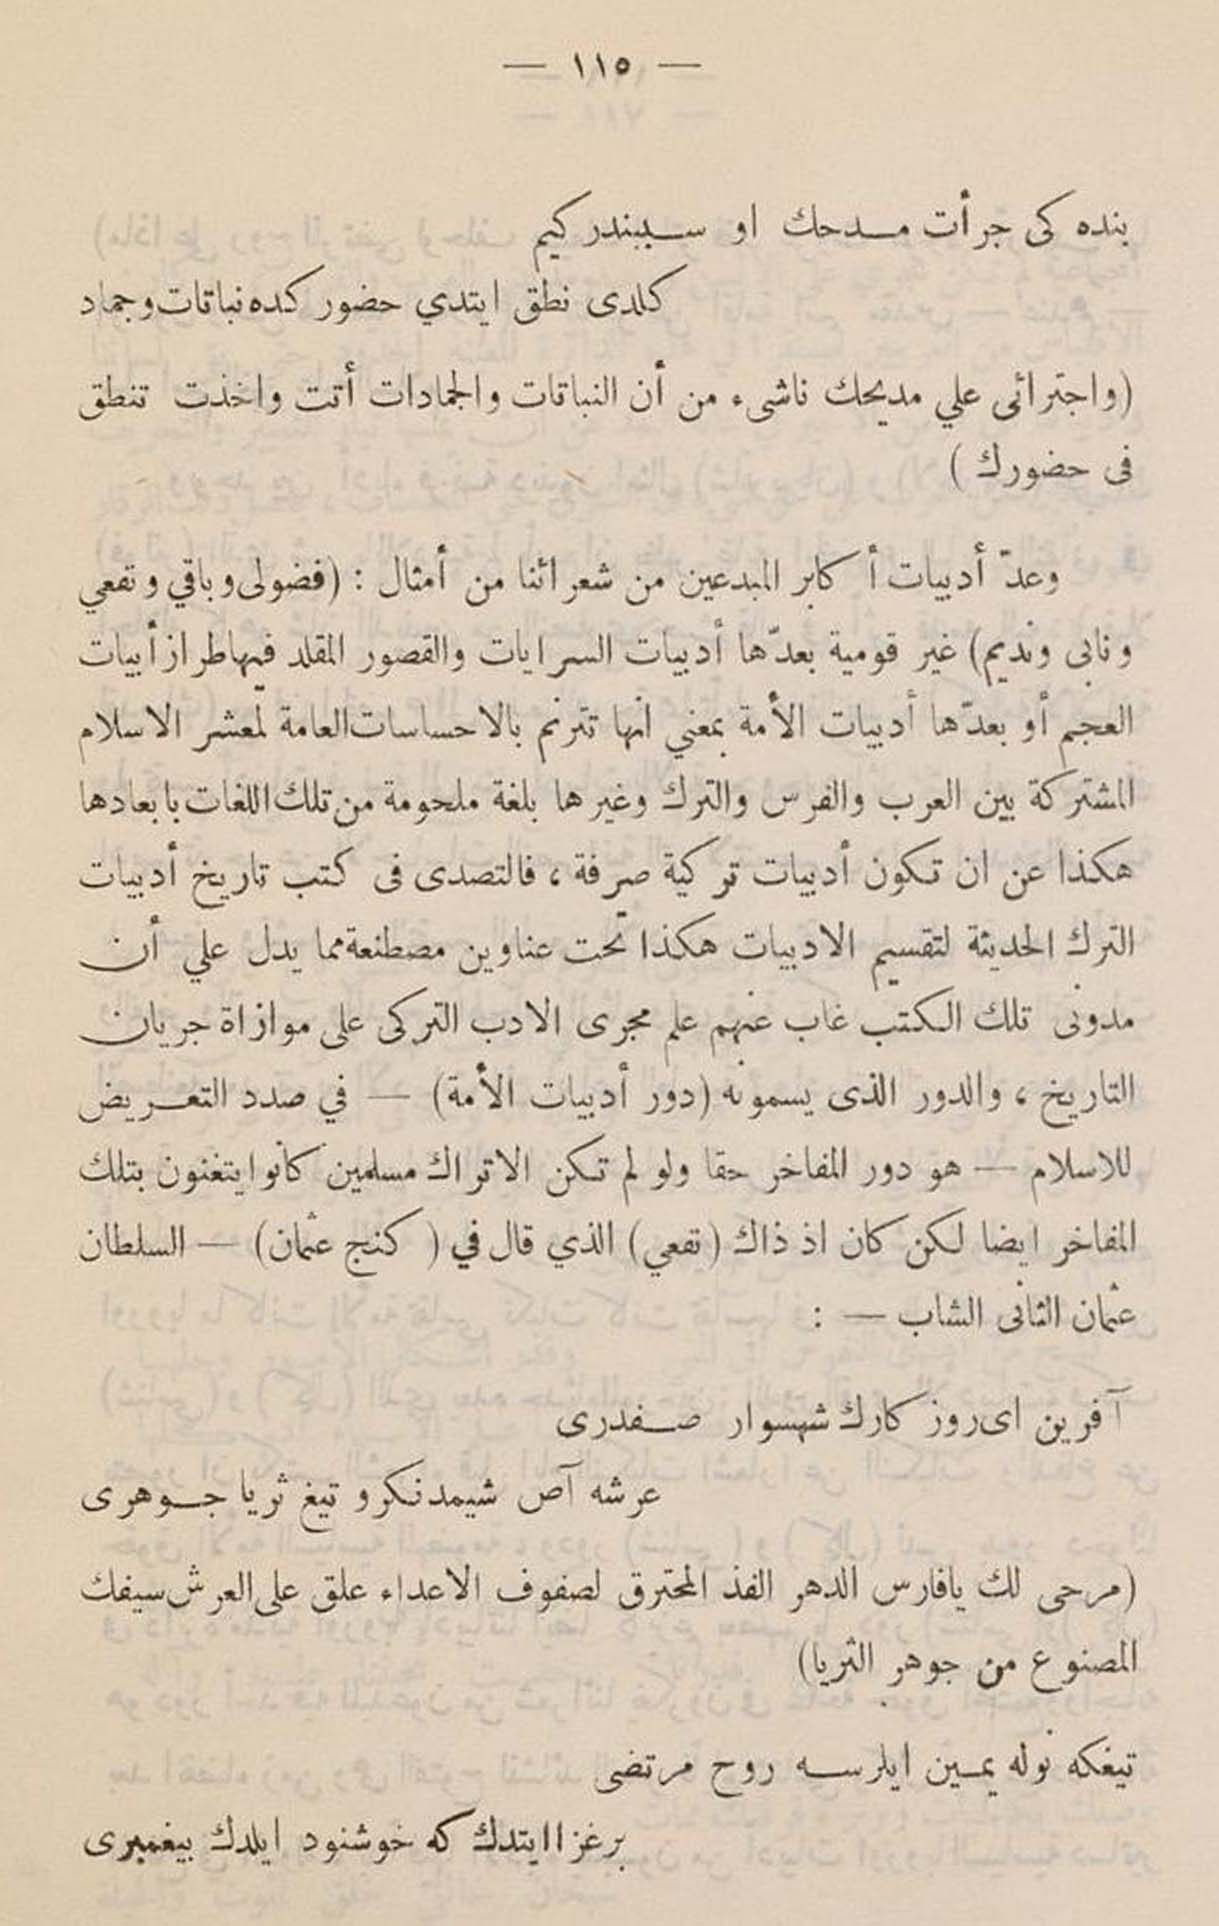 — ١١٥ —
بنده كى جرأت مـدحك او سـببندر كيم
كلدى نطق ايتدي حضور كده نباتات وجماد
(واجترائى علي مديحك ناشىء من أن النباتات والجمادات أتت واخذت تنطق
فى حضورك )
وعدّ أدبيات أ كابر المبدعين من شعرائنا من أمثال : (فضولى وباقي ونفعي
ونابى ونديم) غير قومية بعدّها أدبيات السرايات والقصور المقلد فيها طراز أبيات
العجم أو بعدّها أدبيات الأمة بمعني انها تترنم بالاحساسات العامة لمعشر الاسلام
المشتركة بين العرب والفرس والترك وغيرها بلغة ملحومة من تلك اللغات بابعادها
هكذا عن ان تكون أدبيات تركية صرفة ، فالتصدى فى كتب تاريخ أدبيات
الترك الحديثة لتقسيم الادبيات هكذا تحت عناوين مصطنعة مما يدل علي أن
مدونى تلك الكتب غاب عنهم علم مجرى الادب التركى على موازاة جريان
التاريخ ، والدور الذى يسمونه (دور أدبيات الأمة) — في صدد التعـريض
للاسلام — هو دور المفاخر حقا ولو لم تكن الاتراك مسلمين كانوا يتغنون بتلك
المفاخر ايضا لكن كان اذ ذاك (نفعي) الذي قال في ( كنج عثمان) — السلطان
عثمان الثانى الشاب — :
آفرين اى روز كارك شهسوار صـفدرى
عرشه آص شيمدنكرو تيغ ثريا جـوهرى
(مرحى لك يافارس الدهر الفذ المحترق لصفوف الاعداء علق على العرش سيفك
المصنوع من جوهر الثريا)
تيغكه نوله يمـين ايلرسـه روح مرتضى
برغزا ايتدك كه خوشنود ايلدك بيغمبرى